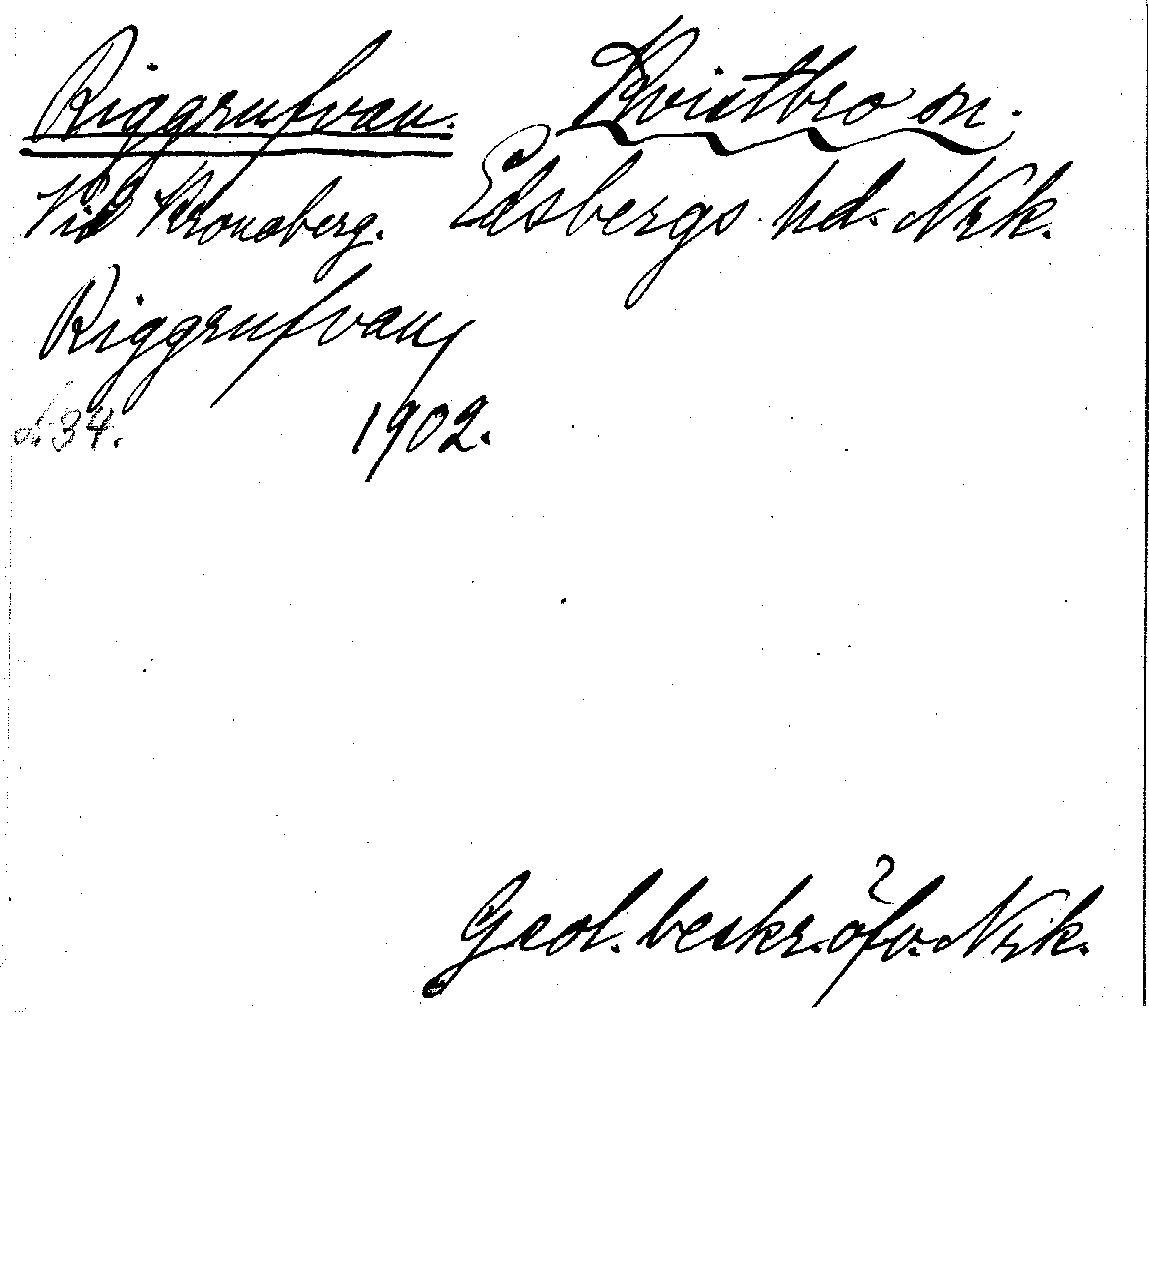 Riggrufvan. Kvistbro sn.
Vid Kronaberg. Edsbergs hd. Nrk.
Riggrufvan,
s. 34. 1902.
Geol. beskr. öfv. Nrk.